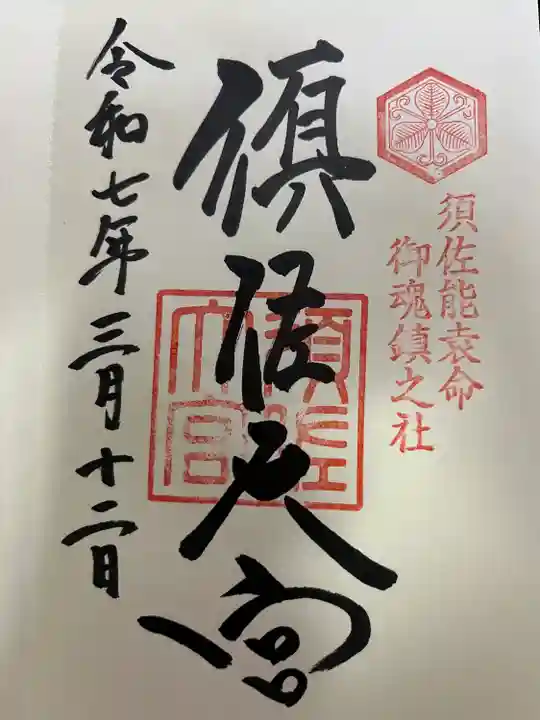 須佐能袁命
御魂鎮之社
須佐大宮
須佐
大宮
令和七年三月十二日